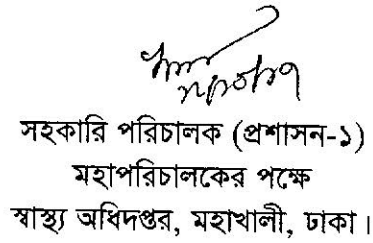 সহকারি পরিচালক (প্রশাসন-১)
মহাপরিচালকের পক্ষে
স্বাস্থ্য অধিদপ্তর, মহাখালী, ঢাকা।